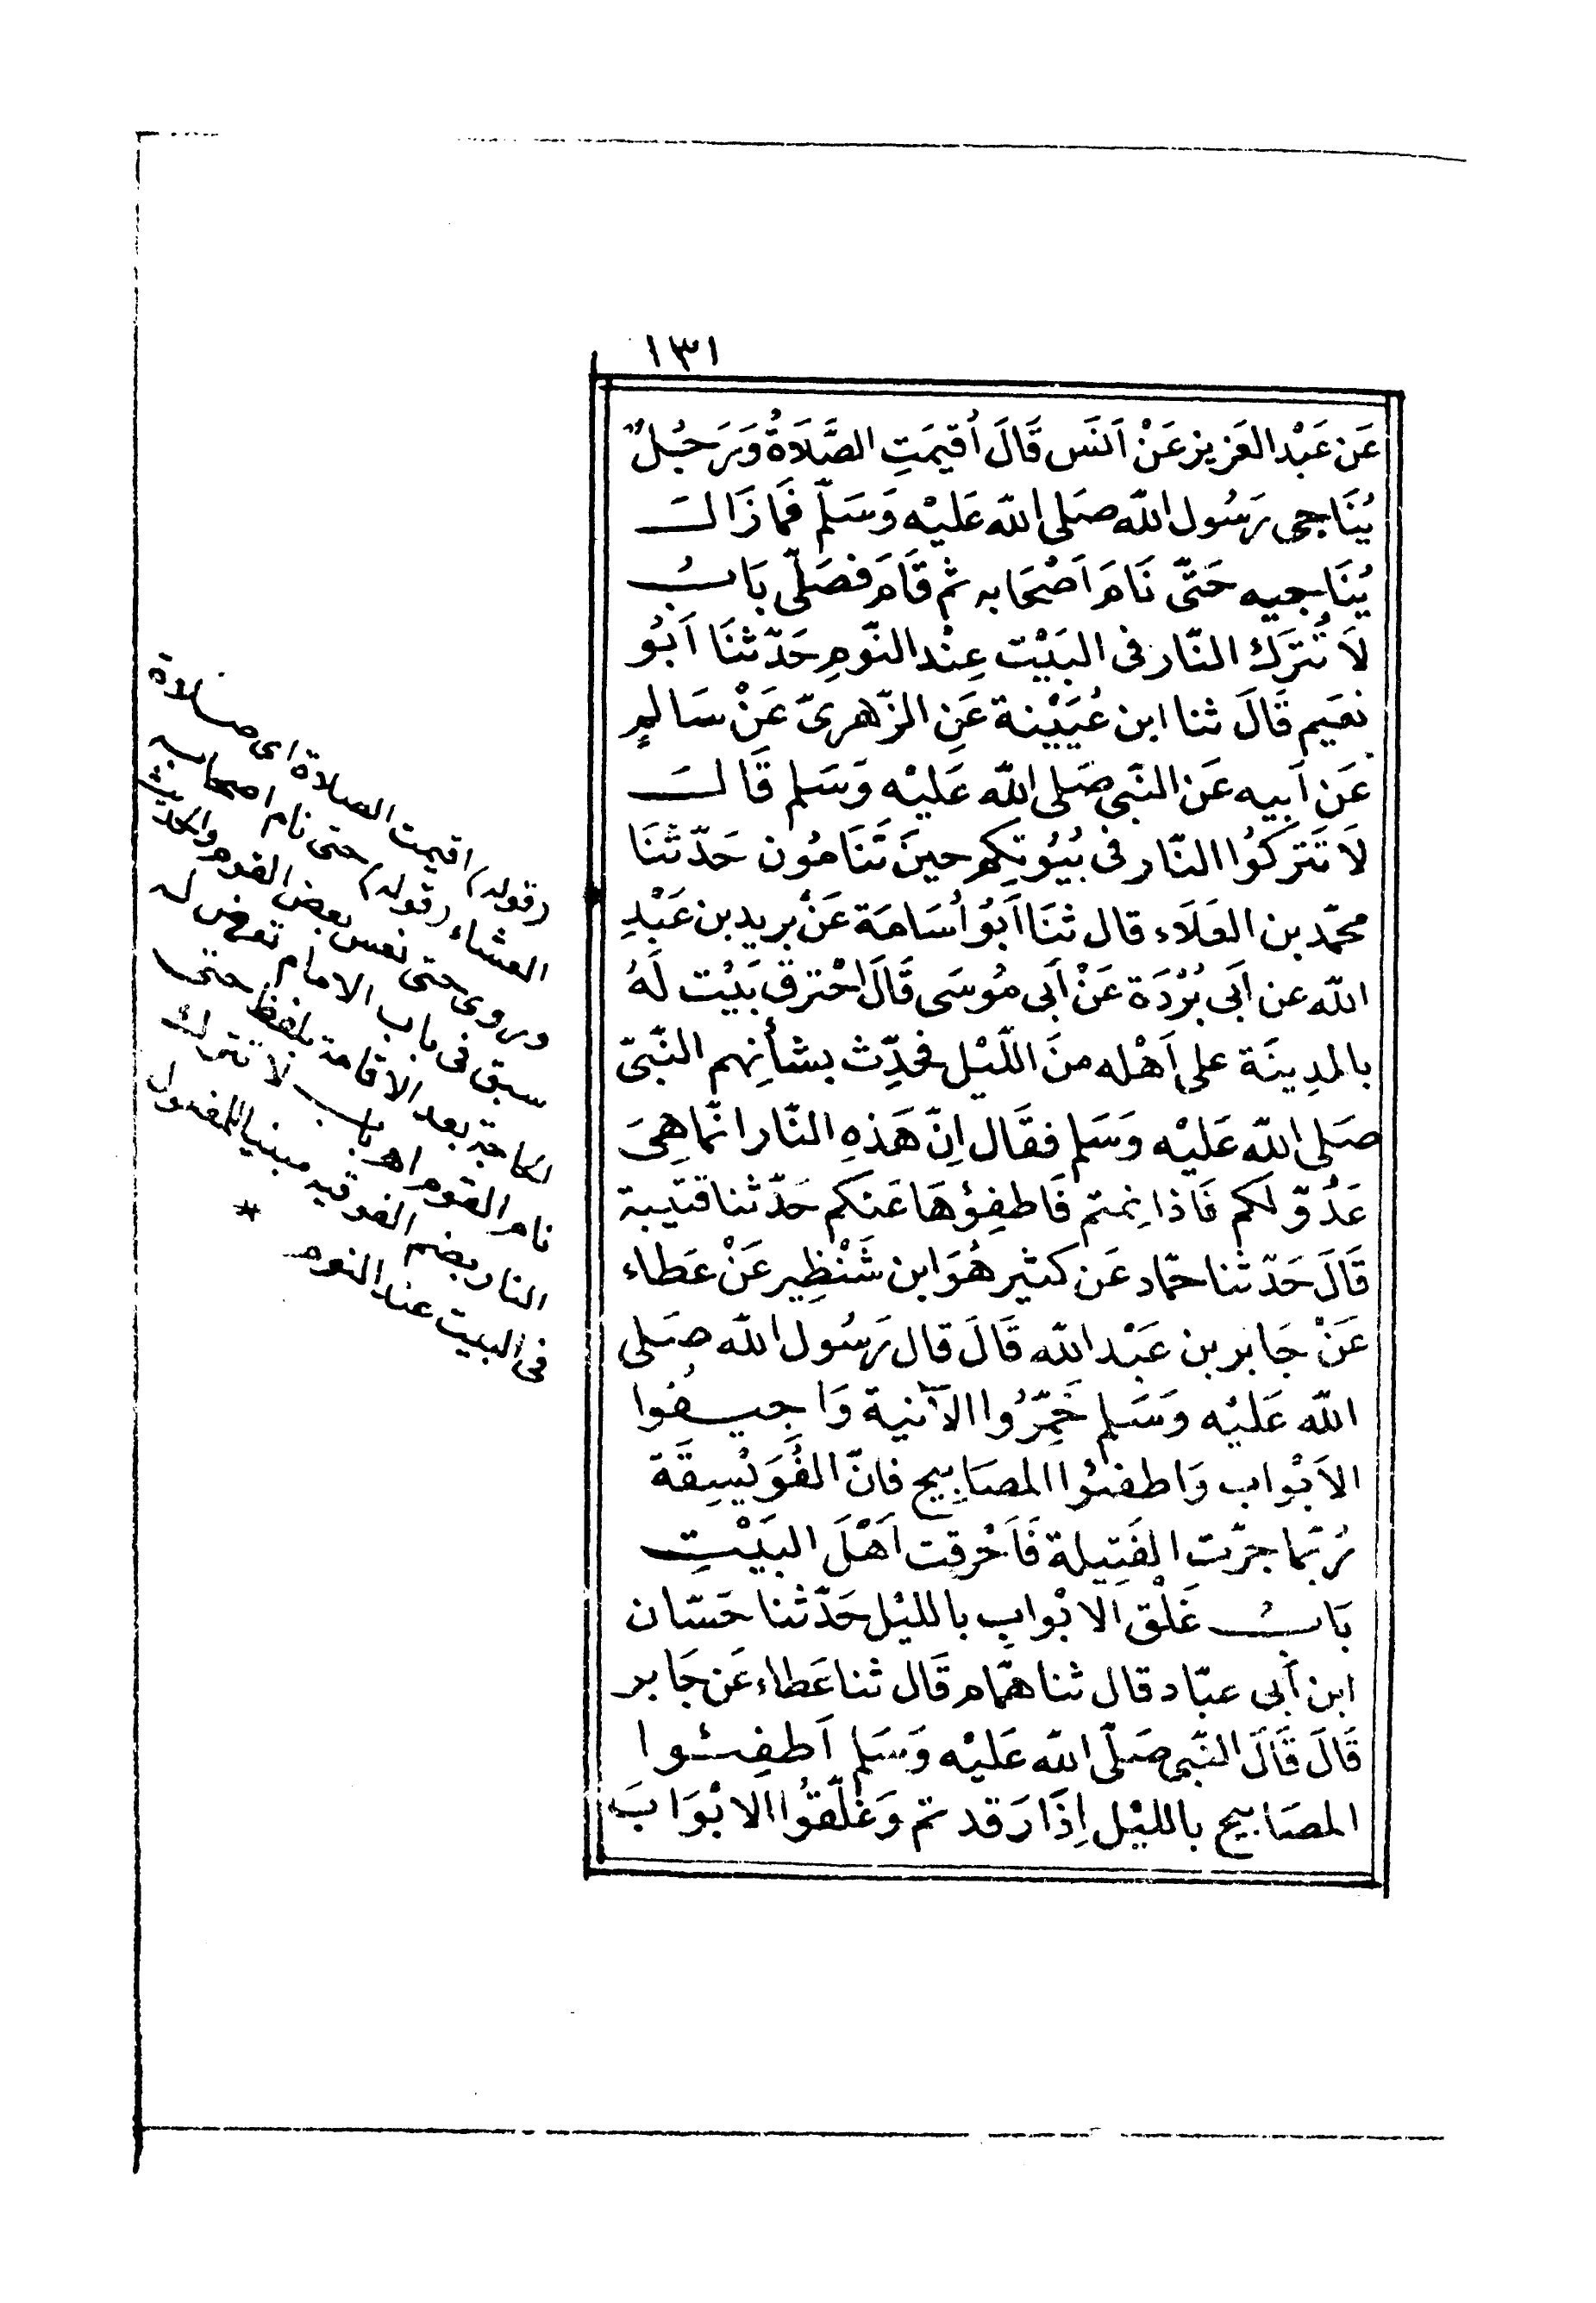 ١٣١
عَن عَبْد العَزيز عَنْ اَنَس قَالَ اُقيمَتِ الصَّلَاةُ وَرَجُلٌ
يُنَاجى رَسُول الله صَلى الله عَليْه وَسَلّم فَمَا زَالَ
يُنَاجيه حَتّى نَامَ اَصْحَابه ثم قَامَ فصَلّى بَابُ
لاَ تُتْرَك النّار فى البَيْت عِنْد النّومِ حَدّثنَا اَبُو
نعَيم قَالَ ثنا ابن عُيَيْنة عَنِ الزّهرىّ عَنْ سَالمٍ
عَن اَبيه عَن النَّبى صَلى الله عَليْه وَسَلم قَالَ
لاَ تَتركُوا النّار فى بُيُوتكِم حينَ تَنَامُون حَدّثنَا
محمّد بن العَلاَء قال ثنَا اَبُو اُسَامَة عَنْ بريد بن عَبْدِ
الله عن اَبى بُرْدَة عَنْ اَبى مُوسَى قَالَ احْترق بَيْت لَهُ
بالمدِينَة على اَهْله منَ اللّيْل فحُدِّث بشأنِهم النَّبىّ
صَلى الله عَليْه وَسَلم فقَال اِنّ هَذهِ النّار انّما هِىَ
عَدُوّ لكم فَاذا نِمتم فَاطفِؤهَا عَنكم حَدّثنا قتَيبة
قَالَ حَدّثنا حمّاد عَن كثير هُوَ ابن شَنْظِير عَنْ عَطاء
عَنْ جَابر بن عَبْد الله قَالَ قال رَسُول الله صَلى
الله عَليْه وَسَلم خَمِّرُوا الآنية وَاجِيفُوا
الاَبْواب وَاطفئوا المصَابِيح فانّ الفُوَيْسِقَة
رُبّما جرّت الفَتِيلة فَاَحْرقت اَهْلَ البَيْتِ
بَابُ غَلْق الاَبْوابِ بالليْل حَدّثنا حَسّان
ابن اَبى عبّاد قال ثنا همّام قَال ثنا عَطاء عَن جَابر
قَالَ قَالَ النّبى صَلّى الله عَليْه وَسَلم اَطفِئوا
المصَابيح بالليْل اِذَا رَقدتم وَغَلّقُوا الاَبْوَابَ
(قوله) اقيمت الصلاة اى صلاة
العشاء (قوله) حتى نام اصحابه
وروى حتى نعس بعض القوم والحديث
سبق فى باب الامام تعرض له
الحاجة بعد الاقامة بلفظ حتى
نام القوم اهـ باب لا تترك
النار بضم الفوقيه مبنيا للمفعول
فى البيت عند النوم *